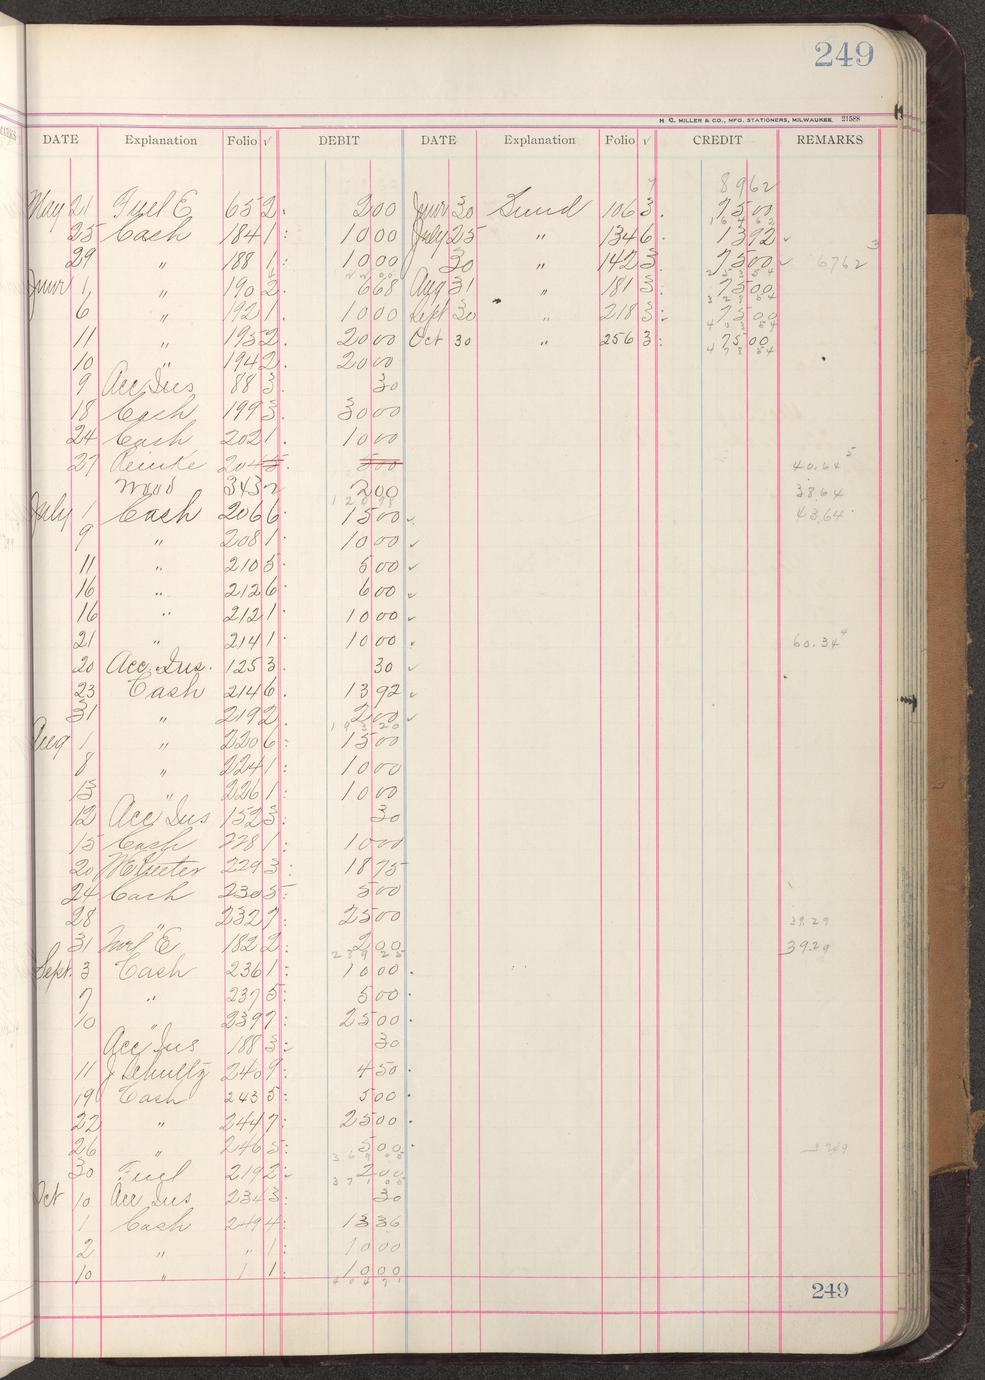 249
H. C. MILLER & CO., MFG. STATIONERS, MILWAUKEE. 21588
DATE Explanation Folio √ DEBIT DATE Explanation Folio √ CREDIT REMARKS
7 8962
May 21 Fuel E 65 2 . 2 00 June 30 Sund 106 3 . 75 00
25 Cash 184 1 : 10 00 July 25 " 134 6 . 13 92 ✓
29 " 188 1 : 10 00 30 " 142 3 75 00 ✓ 6762
June 1 " 190 2 6 68 Aug 31 " 181 3 : 75 00
6 " 192 1 . 10 00 Sept 30 " 218 3 : 75 00
11 " 195 2 . 20 00 Oct 30 " 256 3 : 75 00
10 " 194 2 . 20 00
9 Acc Ins 88 3 . 30
18 Cash 199 3 . 30 00
24 Cash 202 1 . 10 00
27 Reinke 204 5 . 5 00 40.64 5
Wood 343 2 2 00 38 64
July 1 Cash 206 6 15 00 ✓ 43,64
9 " 208 1 . 10 00 ✓
11 " 210 5 . 5 00 ✓
16 " 212 6 6 00 ✓
16 " 212 1 . 10 00 ✓
21 " 214 1 . 10 00 60.34 4
20 Acc. Ins. 125 3 . 30 ✓
23 Cash 214 6 . 13 92 ✓
31 " 219 2 . 2 00 ✓
Aug 1 " 220 6 : 15 00
8 " 224 1 : 10 00
13 " 226 1 : 10 00
12 Acc Ins 152 3 : 30
15 Cash 228 1 : 10 00
20 229 3 : 18 75
24 Cash 230 5 5 00
28 " 232 7 : 25 00 39.29
31 E 182 2 : 2 00 39.29
289 25
Sept. 3 Cash 236 1 : 10 00 .
7 " 237 5 : 5 00 .
10 " 239 7 : 25 00 .
Acc Ins 188 3 : 30
11 J Schultz 240 9 : 4 50 .
19 Cash 243 5 : 5 00 .
22 " 244 7 : 25 00 .
26 " 246 5 : 5 00 .
30 Fuel 219 2 : 2 00
371
Oct 10 Acc Ins 234 3 : 30
1 Cash 249 4 : 13 36
2 " " 1 : 10 00
10 " 1 1 : 10 00
404 71
249